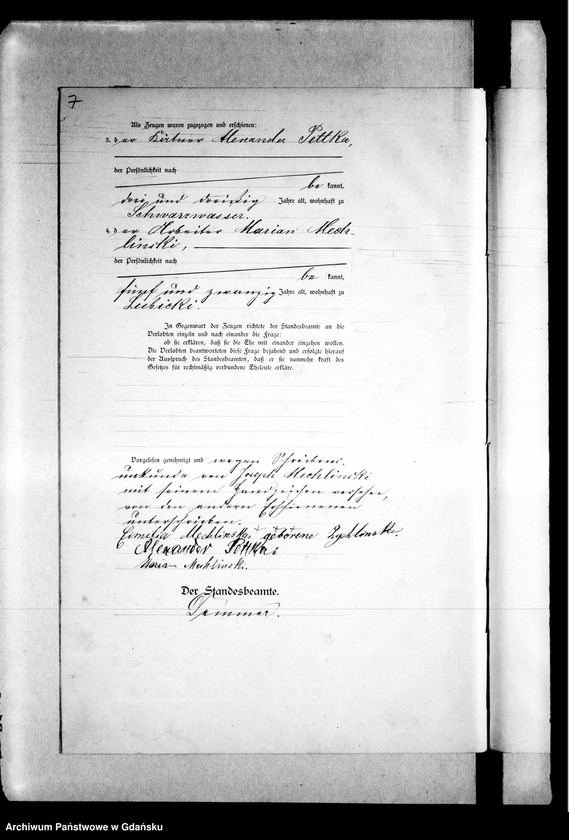 7
Als Zeugen waren zugezogen und erschienen:
3. der Kätner Alexander Pettka,
der Persönlichkeit nach
be kannt,
drei und dreißig Jahre alt, wohnhaft zu
Schwarzwasser.
4. der Arbeiter Marian Mech-
linski,
der Persönlichkeit nach
be kannt,
fünf und zwanzig Jahre alt, wohnhaft zu
Lubicki.
In Gegenwart der Zeugen richtete der Standesbeamte an die
Verlobten einzeln und nach einander die Frage:
ob sie erklären, daß sie die Ehe mit einander eingehen wollen.
Die Verlobten beantworteten diese Frage bejahend und erfolgte hierauf
der Ausspruch des Standesbeamten, daß er sie nunmehr kraft des
Gesetzes für rechtmäßig verbundene Eheleute erkläre.
Vorgelesen, genehmigt und wegen Schreibens
unkunde von Joseph Mechlinski
mit seinem Handzeichen versehen,
von den andern Erschienenen
unterschrieben.
Mechlinska geborene
Alexander Pettka
Marian Mechlinski.
Der Standesbeamte.
Archiwum Państwowe w Gdańsku